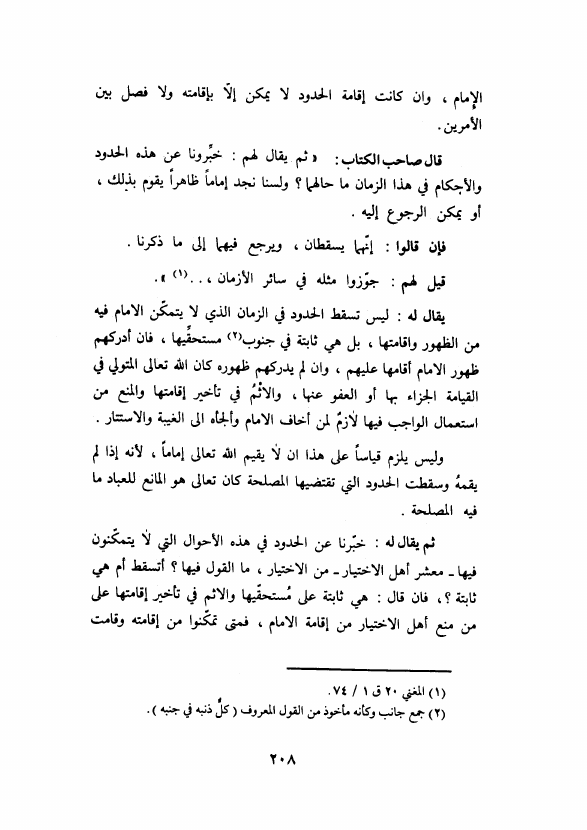 الإمام ، وان كانت إقامة الحدود لا يمكن إلّا بإقامته ولا فصل بين
الأمرين .
قال صاحب الكتاب : « ثم يقال لهم : خبِّرونا عن هذه الحدود
والأحكام في هذا الزمان ما حالهما ؟ ولسنا نجد إماماً ظاهراً يقوم بذلك ،
أو يمكن الرجوع إليه .
فإن قالوا : إنّهما يسقطان ، ويرجع فيهما إلى ما ذكرنا .
قيل لهم : جوّزوا مثله في سائر الأزمان ،..(١) » .
يقال له : ليس تسقط الحدود في الزمان الذي لا يتمكّن الامام فيه
من الظهور واقامتها ، بل هي ثابتة في جنوب(٢) مستحقِّيها ، فان أدركهم
ظهور الامام أقامها عليهم ، وان لم يدركهم ظهوره كان الله تعالى المتولي في
القيامة الجزاء بها أو العفو عنها ، والاثْمُ في تأخير إقامتها والمنع من
استعمال الواجب فيها لاَزمٌ لمن أخاف الامام وألجأه الى الغيبة والاستتار .
وليس يلزم قياساً على هذا ان لاَ يقيم الله تعالى إماماً ، لأنه إذا لم
يقمهُ وسقطت الحدود التي تقتضيها المصلحة كان تعالى هو المانع للعباد ما
فيه المصلحة .
ثم يقال له : خبّرنا عن الحدود في هذه الأحوال التي لاَ يتمكّنون
فيها - معشر أهل الاختيار - من الاختيار ، ما القول فيها ؟ أتسقط أم هي
ثابتة ؟ ، فان قال : هي ثابتة على مُستحقّيها والاثم في تأخير إقامتها على
من منع أهل الاختيار من إقامة الامام ، فمتى تمكّنوا من إقامته وقامت
(١) المغني ٢٠ ق ١ / ٧٤ .
(٢) جمع جانب وكأنه مأخوذ من القول المعروف ( كلُّ ذنبه في جنبه ) .
٢٠٨